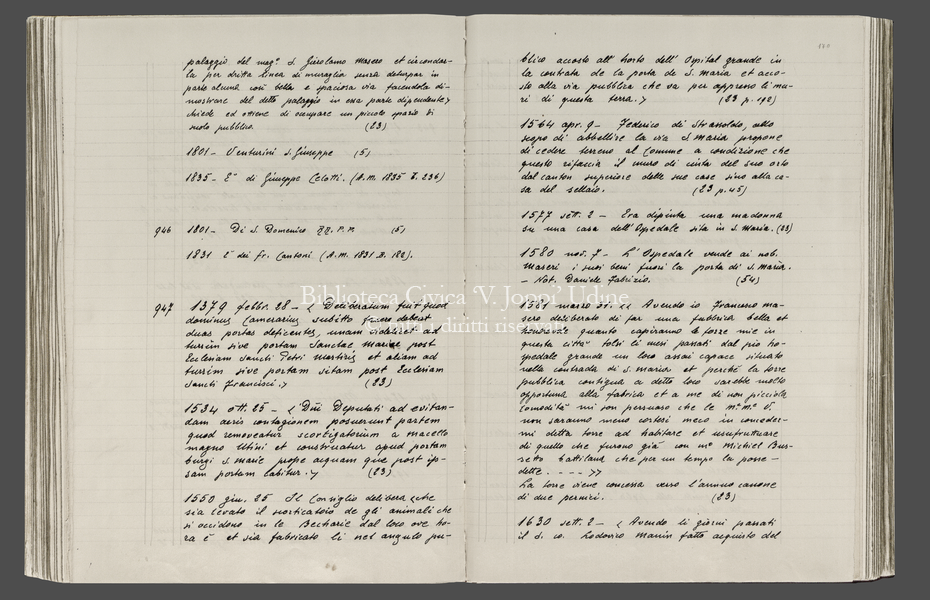 palaggio del mag.º S. Girolamo Masero et circondar-
la per dritta linea di muraglia senza deturpar in
parte alcuna così bella e spaciosa via facendola di-
mostrare del detto palaggio in essa parte dipendente>
chiede ed ottiene di occupare un piccolo spazio di
suolo pubblico. (23)
1801 - Venturini S. Giuseppe (5)
1835 - E' di Giuseppe Celotti. (A.M. 1835 236)
946 1801 - Di S. Domenico RR. P.P. (5)
1831 È dei Fr. Cantoni (A.M. 1831 182).
947 1379 febbr. 28 - < Deliberatum fuit quod
dominus Camerarius subito facere debeat
duas portas deficentes, unam videlicet ad
turrim sive portam Sanctae Mariae post
Ecclesiam Sancti Petri Martiris et aliam ad
turrim sive portam sitam post Ecclesiam
Sancti Francisci.> (23)
1534 ott. 25 - < Dñi Deputati ad evitan-
dam aeris contagionem posuerunt partem
quod removeatur scortigatorium a macello
magno Utini et construatur apud portam
burgi S. Marie prope aquam que post ip-
sam portam labitur.> (23)
1550 giu. 25 Il Consiglio delibera <che
sia levato il scorticatoio de gli animali che
si occidono in le Becharie dal loco ove ho-
ra è et sia fabricato lì nel angulo pu-
blico accosto all' horto dell' Ospital grande in
la contrata de la porta de S. Maria et acco-
sto alla via pubblica che va per appreno li mu-
ri di questa terra.> (23 p. 192)
1564 apr. 9 - Federico di Strassoldo, allo
scopo di abbellire la via S. Maria propone
di cedere terreno al Comune a condizione che
questo rifaccia il muro di cinta del suo orto
dal canton superiore delle sue case sino alla ca-
sa del sellaio. (23 p. 45)
1577 sett. 2 - Era dipinta una madonna
su una casa dell'Ospedale sita in S. Maria. (23)
1580 nov. 7 - L' Ospedale vende ai nob.
Maseri i suoi beni fuori la porta di S. Maria.
- Not. Daniele Fabrizio. (54)
1581 marzo 31. << Avendo io Francesco Ma-
sero deliberato di far una fabbrica bella et
honorevole quanto capiranno le forze mie in
questa città tolsi li mesi passati dal pio ho-
spedale grande un loco assai capace situato
nella contrada di S. Maria et perchè la torre
pubblica contigua a detto loco sarebbe molto
opportuna alla fabrica et a me di non picciola
comodità mi son persuaso che le M. M. V.
non saranno meno cortesi meco in conceder-
mi detta torre ad habitare et usufruttuare
di quello che furono già con mº Michiel Bur-
setto battilana che per un tempo la posse-
dette. - - - >>
La torre viene concessa verso l'annuo canone
di due pernici. (23)
1630 sett. 2 - < Avendo li giorni passati
il S. co. Lodovico Manin fatto acquisto del
Biblioteca Civica 'V. Joppi' Udine
© tutti i diritti riservati